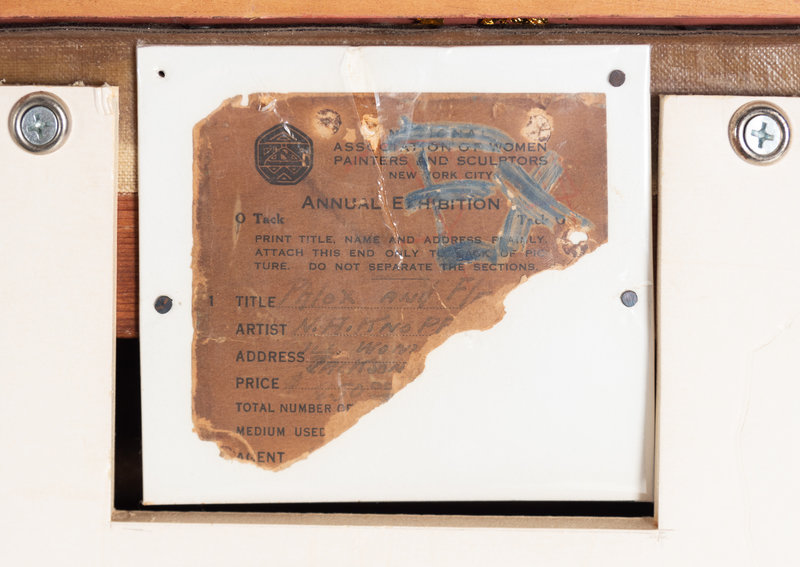 ASSOCIATION OF WOMEN
PAINTERS AND SCULPTORS
NEW YORK CITY
ANNUAL EXHIBITION
O Tack Tack O
PRINT TITLE, NAME AND ADDRESS PLAINLY,
ATTACH THIS END ONLY TO BACK OF PIC-
TURE. DO NOT SEPARATE THE SECTIONS.
1 TITLE Phlox and
ARTIST N.H. KNOPF
ADDRESS
PRICE
TOTAL NUMBER OF
MEDIUM USED
AGENT